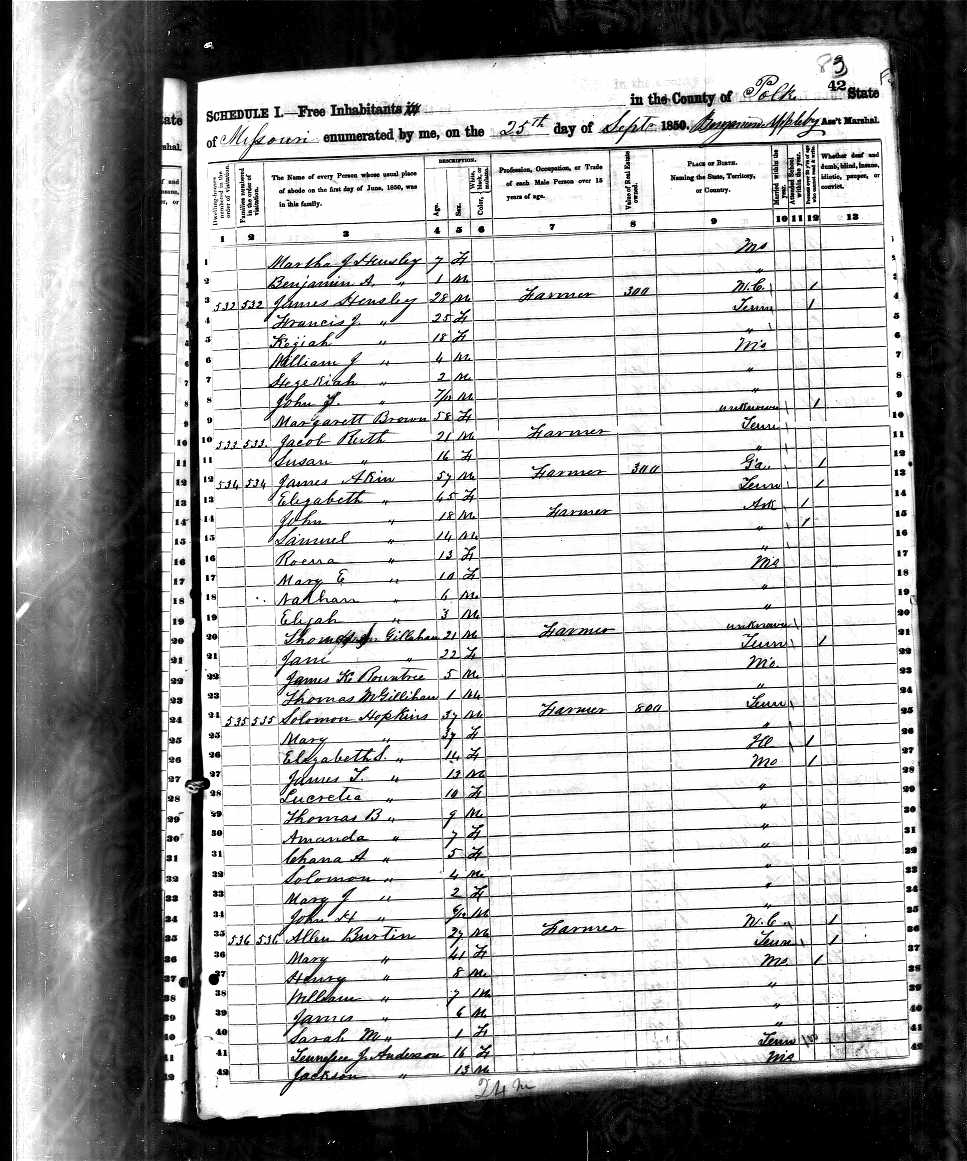 83
42
SCHEDULE I.—Free Inhabitants in in the County of Polk State
of Missouri enumerated by me, on the 25th day of Sept 1850. Benjamin Appleby Ass't Marshal.
Dwelling-houses numbered in the order of visitation.
Families numbered in the order of visitation.
The Name of every Person whose usual place of abode on the first day of June, 1850, was in this family.
DESCRIPTION.
Age.
Sex.
White, black, or mulatto. Color,
Profession, Occupation, or Trade of each Male Person over 15 years of age.
Value of Real Estate owned.
PLACE OF BIRTH. Naming the State, Territory, or Country.
Married within the year.
Attended School within the year.
Persons over 20 y'rs of age who cannot read & write.
Whether deaf and dumb, blind, insane, idiotic, pauper, or convict.
1 2 3 4 5 6 7 8 9 10 11 12 13
1 Martha J Hensley 7 F Mo
2 Benjamin A. " 1 M "
3 532 532 James Hensley 28 M Farmer 300 N.C. 1
4 Francis J. " 25 F Tenn 1
5 Keziah " 18 F "
6 William J " 4 M Mo
7 Hezekiah " 2 M "
8 John " 7/12 M "
9 Margarett Brown 58 F unknown 1
10 533 533 Jacob Ruth 21 M Farmer Tenn
11 Susan " 16 F "
12 534 534 James Akin 57 M Farmer 300 Ga. 1
13 Elizabeth " 45 F Tenn 1
14 John " 18 M Farmer Ark 1
15 Samuel " 14 M " 1
16 " 13 F "
17 Mary E " 10 F Mo
18 Nathan " 6 M "
19 Elijah " 3 M "
20 Gillihan 21 M Farmer unknown
21 Jane " 22 F Tenn 1
22 James K Rountree 5 M Mo
23 Thomas McGillihan 1 M "
24 535 535 Solomon Hopkins 37 M Farmer 800 Tenn
25 Mary " 37 F "
26 Elizabeth S. " 14 F Ill 1
27 James T. " 12 M Mo 1
28 Lucretia " 10 F "
29 Thomas B " 9 M "
30 Amanda " 7 F "
31 Chana A " 5 F "
32 Solomon " 4 M "
33 Mary J " 2 F "
34 John H " M "
35 536 536 Allen Burtin 27 M Farmer N.C. 1
36 Mary " 41 F Tenn 1
37 Henry " 8 M Mo. 1
38 William " 7 M "
39 James " 6 M "
40 Sarah M " 1 F "
41 Tennessee J Anderson 16 F Tenn
42 Jackson " 13 M Mo
24 m